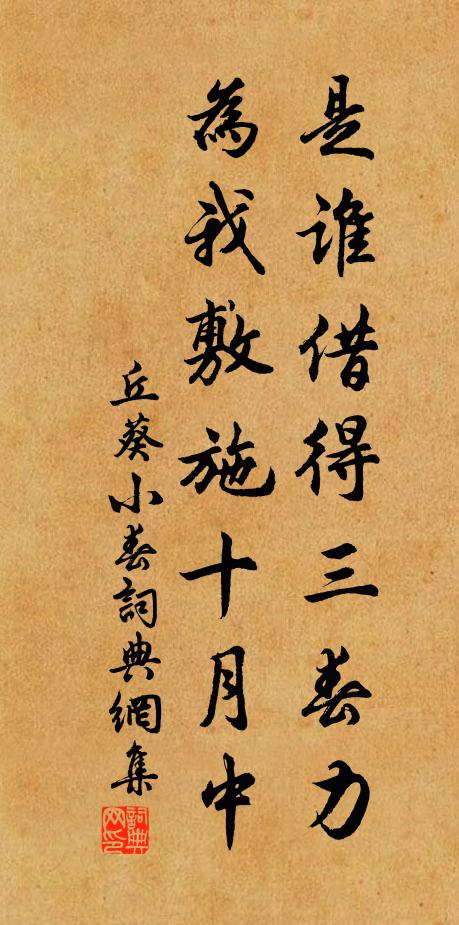 是誰借得三春力
為我敷施十月中
丘葵小春詞典網集
詞典网印